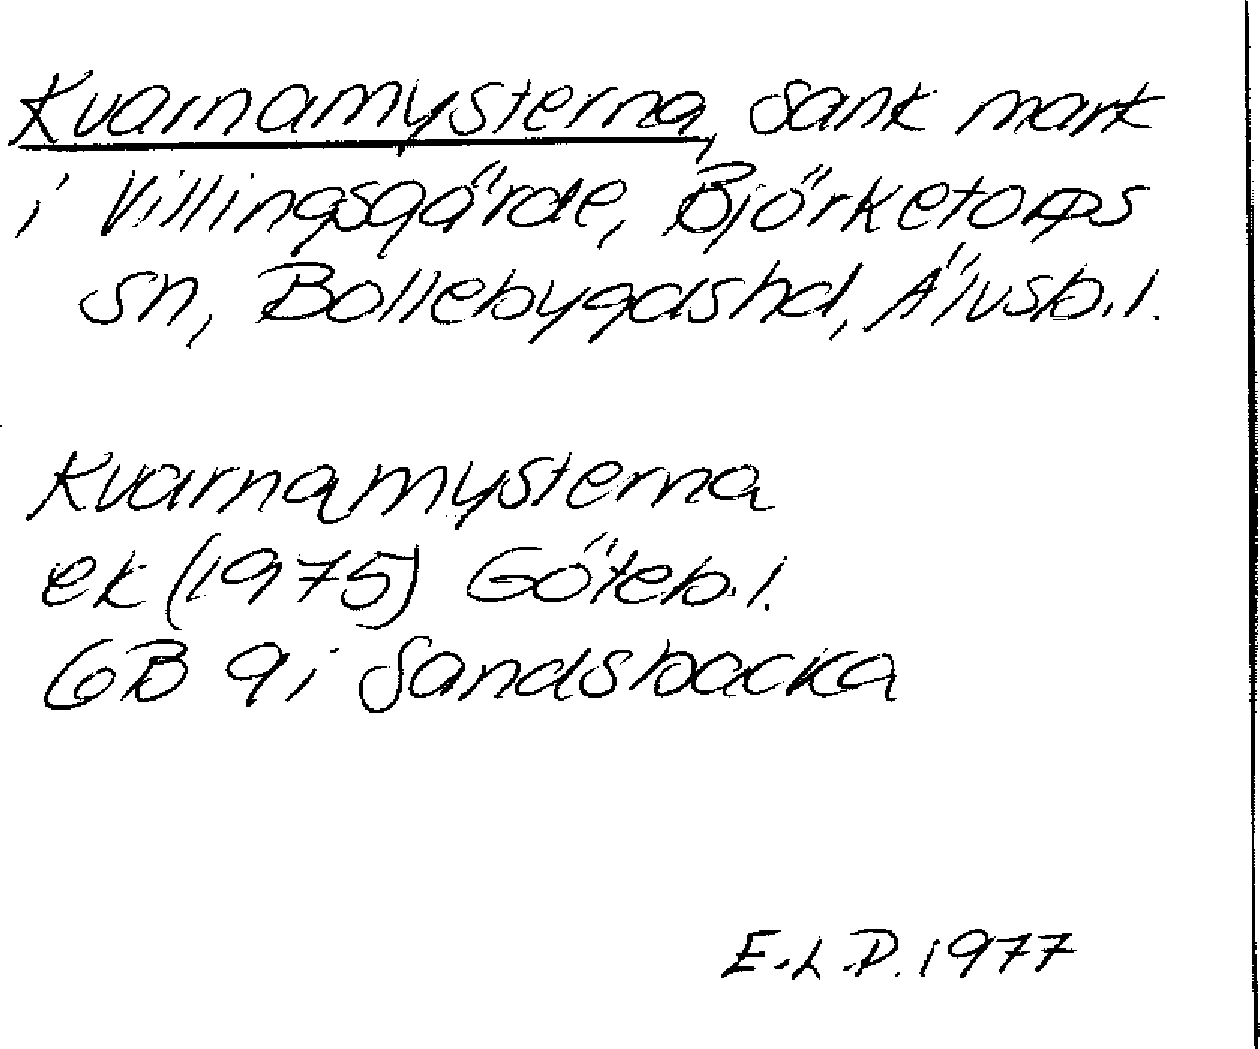 Kvarnamysterna, sank mark
i Villingsgärde, Björketorps
sn, Bollebygdshd, Älvsb.l.
Kvarnamysterna
ek (1975) Göteb.l.
GB 9i Sandsbacka
E.L.D. 1977